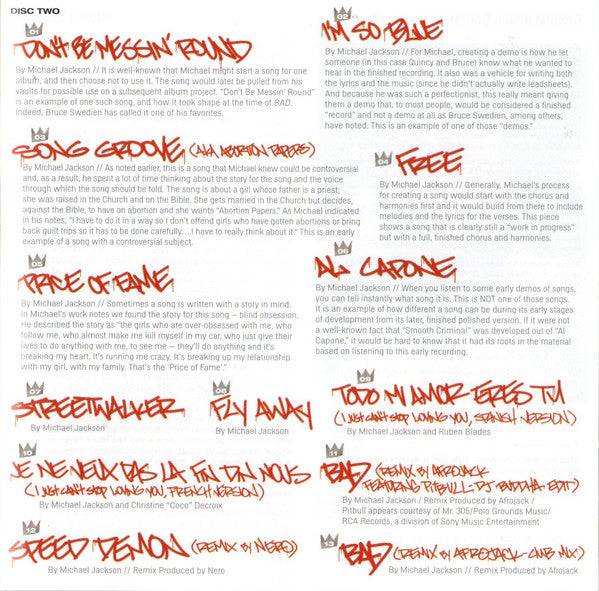 DISC TWO
01
DON'T BE MESSIN' 'ROUND
By Michael Jackson // It is well-known that Michael might start a song for one
album, and then choose not to use it. The song would later be pulled from his
vaults for possible use on a subsequent album project. "Don't Be Messin' 'Round"
is an example of one such song, and how it took shape at the time of BAD.
Indeed, Bruce Swedien has called it one of his favorites.
02
I'M SO BLUE
By Michael Jackson // For Michael, creating a demo is how he let
someone (in this case Quincy and Bruce) know what he wanted to
hear in the finished recording. It also was a vehicle for writing both
the lyrics and the music (since he didn't actually write leadsheets).
And because he was such a perfectionist, this really meant giving
them a demo that, to most people, would be considered a finished
"record" and not a demo at all as Bruce Swedien, among others,
have noted. This is an example of one of those "demos."
03
SONG GROOVE (AKA ABORTION PAPERS)
By Michael Jackson // As noted earlier, this is a song that Michael knew could be controversial
and, as a result, he spent a lot of time thinking about the story for the song and the voice
through which the song should be told. The song is about a girl whose father is a priest;
she was raised in the Church and on the Bible. She gets married in the Church but decides,
against the Bible, to have an abortion and she wants "Abortion Papers." As Michael indicated
in his notes, "I have to do it in a way so I don't offend girls who have gotten abortions or bring
back guilt trips so it has to be done carefully....I have to really think about it." This is an early
example of a song with a controversial subject.
04
FREE
By Michael Jackson // Generally, Michael's process
for creating a song would start with the chorus and
harmonies first and it would build from there to include
melodies and the lyrics for the verses. This piece
shows a song that is clearly still a "work in progress"
but with a full, finished chorus and harmonies.
05
PRICE OF FAME
By Michael Jackson // Sometimes a song is written with a story in mind.
In Michael's work notes we found the story for this song – blind obsession.
He described the story as "the girls who are over-obsessed with me, who
follow me, who almost make me kill myself in my car, who just give their
lives to do anything with me, to see me – they'll do anything and it's
breaking my heart. It's running me crazy. It's breaking up my relationship
with my girl, with my family. That's the 'Price of Fame'."
06
AL CAPONE
By Michael Jackson // When you listen to some early demos of songs,
you can tell instantly what song it is. This is NOT one of those songs.
It is an example of how different a song can be during its early stages
of development from its later, finished polished version. If it were not
a well-known fact that "Smooth Criminal" was developed out of "Al
Capone," it would be hard to know that it had its roots in the material
based on listening to this early recording.
07
STREETWALKER
By Michael Jackson
08
FLY AWAY
By Michael Jackson
09
TODO MI AMOR ERES TU
(I JUST CAN'T STOP LOVING YOU, SPANISH VERSION)
By Michael Jackson and Ruben Blades
10
JE NE VEUX PAS LA FIN DE NOUS
(I JUST CAN'T STOP LOVING YOU, FRENCH VERSION)
By Michael Jackson and Christine "Coco" Decroix
11
BAD (REMIX BY AFROJACK
FEATURING PITBULL- DJ BUDDHA EDIT)
By Michael Jackson / Remix Produced by Afrojack /
Pitbull appears courtesy of Mr. 305/Polo Grounds Music/
RCA Records, a division of Sony Music Entertainment
12
SPEED DEMON (REMIX BY NERO)
By Michael Jackson // Remix Produced by Nero
13
BAD (REMIX BY AFROJACK- CLUB MIX)
By Michael Jackson // Remix Produced by Afrojack